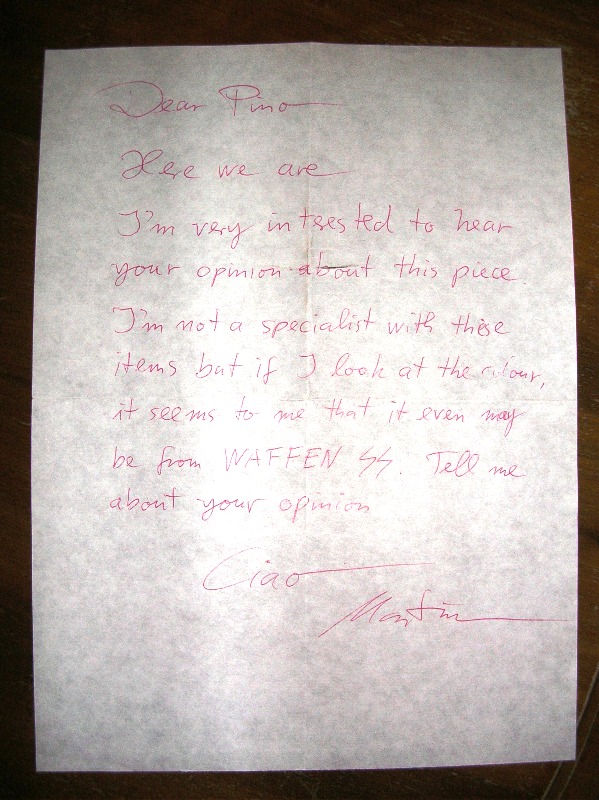 Dear Pino
Here we are
I'm very interested to hear
your opinion about this piece.
I'm not a specialist with these
items but if I look at the colour,
it seems to me that it even may
be from WAFFEN SS. Tell me
about your opinion
Ciao
Martin